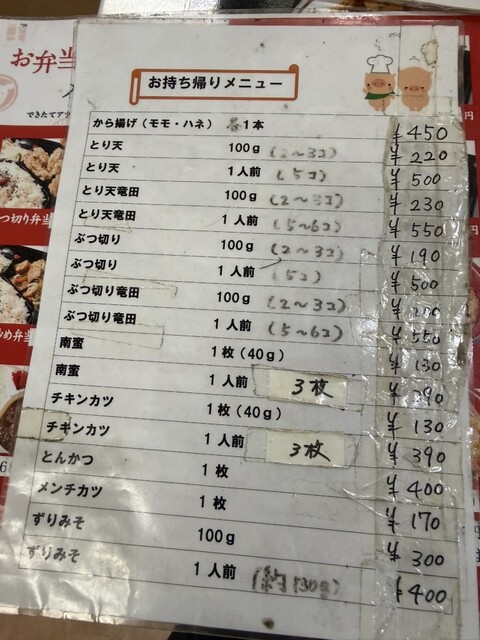 お弁当
できたてアツ
お持ち帰りメニュー
から揚げ（モモ・ハネ） 各1本 ¥450
とり天 100g (2〜3コ) ¥220
とり天 1人前 (5コ) ¥500
とり天竜田 100g (2〜3コ) ¥230
とり天竜田 1人前 (5〜6コ) ¥550
ぶつ切り 100g (2〜3コ) ¥190
ぶつ切り 1人前 (5コ) ¥500
ぶつ切り竜田 100g (2〜3コ) ¥
ぶつ切り竜田 1人前 (5〜6コ) ¥550
南蛮 1枚（40g） ¥130
南蛮 1人前 3枚 ¥390
チキンカツ 1枚（40g） ¥130
チキンカツ 1人前 3枚 ¥390
とんかつ 1枚 ¥400
メンチカツ 1枚 ¥170
ずりみそ 100g ¥300
ずりみそ 1人前 (約130g) ¥400
つ切り弁当
め弁当
円